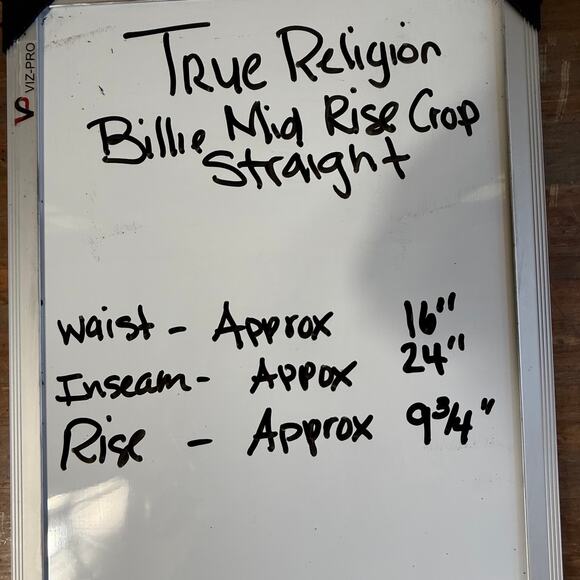 VIZ-PRO
True Religion
Billie Mid Rise Crop
Straight
Waist - Approx 16"
Inseam - Appox 24"
Rise - Approx 9 3/4"